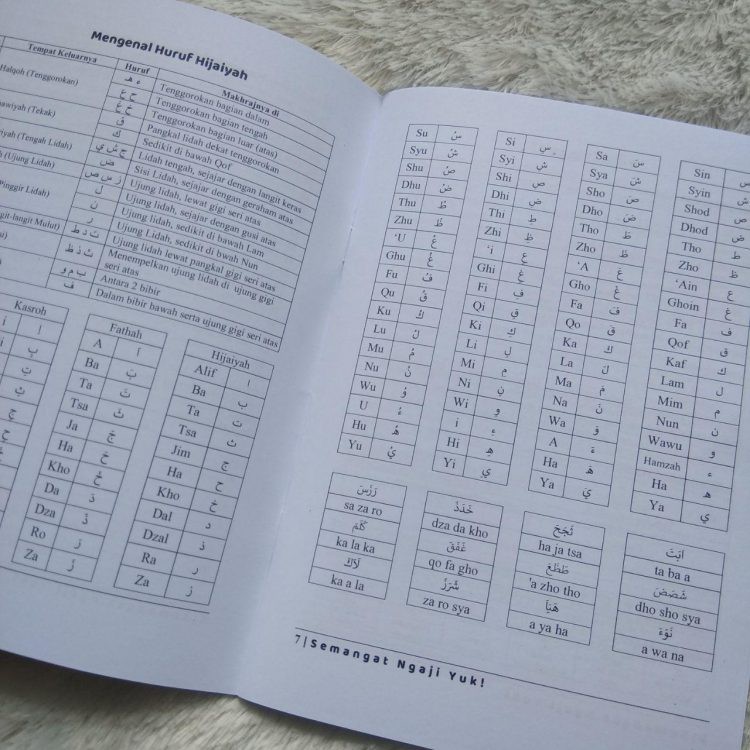 Mengenal Huruf Hijaiyah
Tempat Keluarnya Huruf Makhrajnya di
Halqoh (Tenggorokan) ء ھ Tenggorokan bagian dalam
ح ع Tenggorokan bagian tengah
خ غ Tenggorokan bagian luar (atas)
(Tekak) ق Pangkal lidah dekat tenggorokan
ك Sedikit di bawah Qof
(Tengah Lidah) ج ش ي Lidah tengah, sejajar dengan langit keras
ض Sisi Lidah, sejajar dengan geraham atas
(Ujung Lidah) ز س ص Ujung lidah, lewat gigi seri atas
ل Ujung lidah, sejajar dengan gusi atas
ن Ujung lidah, sedikit di bawah Lam
ر Ujung Lidah, sedikit di bwah Nun
ت د ط Ujung lidah lewat pangkal gigi seri atas
ث ذ ظ Menempelkan ujung lidah di ujung gigi seri atas
ب م و Antara 2 bibir
ف Dalam bibir bawah serta ujung gigi seri atas
Kasroh
Fathah
A اَ
Ba بَ
Ta تَ
Tsa ثَ
Ja جَ
Ha حَ
Kho خَ
Da دَ
Dza ذَ
Ro رَ
Za زَ
Hijaiyah
Alif ا
Ba ب
Ta ت
Tsa ث
Jim ج
Ha ح
Kho خ
Dal د
Dzal ذ
Ra ر
Za ز
Su سُ
Syu شُ
Shu صُ
Dhu ضُ
Thu طُ
Zhu ظُ
‘U عُ
Ghu غُ
Fu فُ
Qu قُ
Ku كُ
Lu لُ
Mu مُ
Nu نُ
Wu وُ
U ءُ
Hu هُ
Yu يُ
Si سِ
Syi شِ
Shi صِ
Dhi ضِ
Thi طِ
Zhi ظِ
‘i عِ
Ghi غِ
Fi فِ
Qi قِ
Ki كِ
Li لِ
Mi مِ
Ni نِ
Wi وِ
i ءِ
Hi هِ
Yi يِ
Sa سَ
Sya شَ
Sho صَ
Dho ضَ
Tho طَ
Zho ظَ
‘A عَ
Gho غَ
Fa فَ
Qo قَ
Ka كَ
La لَ
Ma مَ
Na نَ
Wa وَ
A ءَ
Ha هَ
Ya يَ
Sin س
Syin ش
Shod ص
Dhod ض
Tho ط
Zho ظ
‘Ain ع
Ghoin غ
Fa ف
Qof ق
Kaf ك
Lam ل
Mim م
Nun ن
Wawu و
Hamzah ء
Ha ه
Ya ي
sa za ro
ka la ka
ka a la
dza da kho
qo fa gho
za ro sya
ha ja tsa
'a zho tho
a ya ha
ta ba a
dho sho sya
a wa na
7 | Semangat Ngaji Yuk!